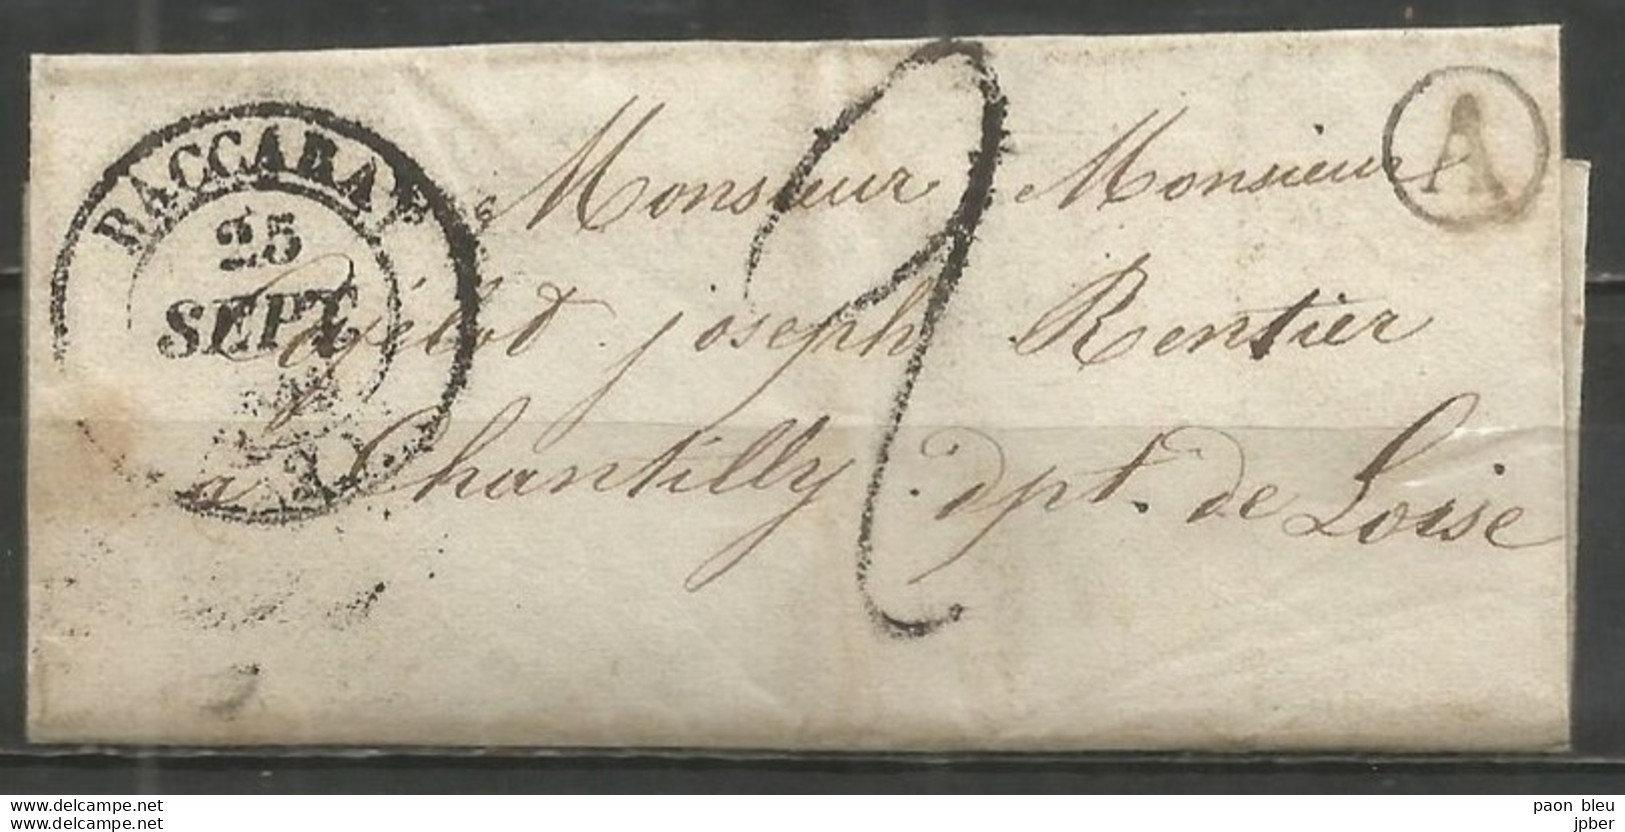 BACCARAT
25
SEPT
A
2
Monsieur Monsieur
joseph Rentier
a Chantilly dpt. de Loise
www.delcampe.net
www.delcampe.net
paon bleu
jpber